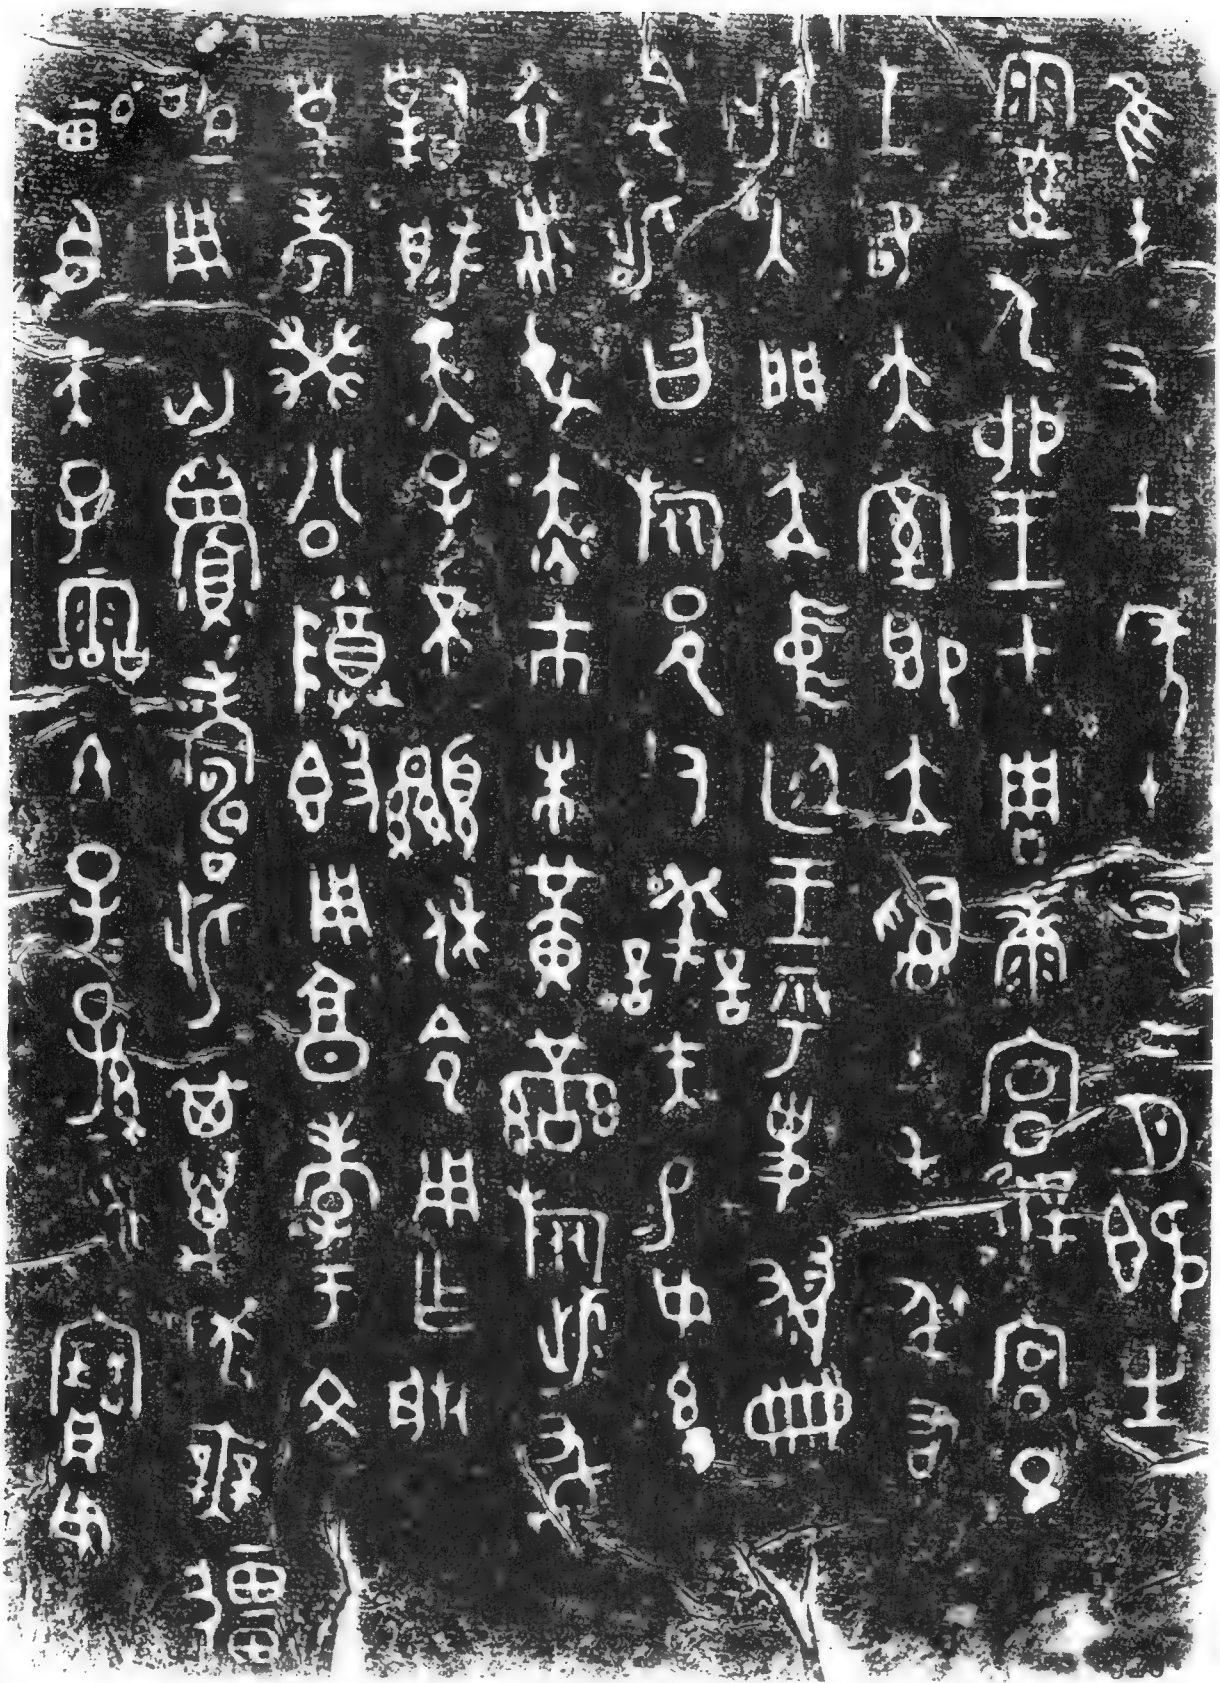 隹十又七年十又二月既生
霸乙卯王才周康宮徲宮旦
王各大室即立𤔲土毛弔
右此入門立中廷王乎史翏冊
令此曰旅邑人善夫易女玄
衣黹屯赤市朱黃䜌旅此敢
對揚天子不顯休令用乍朕
皇考癸公尊𣪘用享孝于文
申用匄眉壽此其萬年無彊
畯臣天子霝冬子子孫永寶用